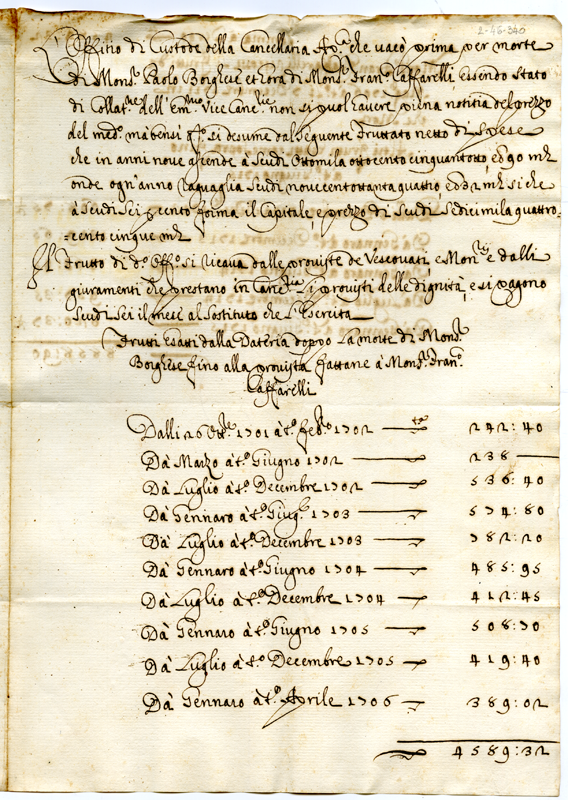 2-46-340
Offitio di Custode della Cancellaria Ap.ca che vacò prima per morte
di Mons.r Paolo Borghese, et hora di Mons.r Fran.co Caffarelli, essendo stato
di Collat.ne dell'Em.mo Vice Canc.rie non si puol havere piena notitia del prezzo
del med.o mà bensi si desume dal seguente Fruttato netto di spese
che in anni nove ascende à scudi Ottomila ottocento cinquantotto, ed 90 m.ta
onde ogn'anno ragguaglia scudi novecentottanta quattro, ed 32 m.ta si che
à scudi sei p cento forma il Capitale, e prezzo di scudi sedicimila quattro-
-cento cinque m.ta
Il Frutto di d.o Off.o si ricava dalle proviste de Vescovati, e Mon.rij e dalli
giuramenti che prestano in Canc.ria li provisti delle dignità, e si pagono
scudi sei il mese al sostituto che l'esercita
Frutti esatti dalla Dateria doppo la morte di Mons.r
Borghese fino alla provista fattane à Mons.r Fran.co
Caffarelli
Dalli 26 Ott.re 1701 à t.o feb.ro 1702 242:40
Da Marzo à t.o Giugno 1702 238
Da Luglio à t.o Decembre 1702 536:40
Da Gennaro à t.o Giug.o 1703 574:80
Da Luglio à t.o Decembre 1703 782:20
Da Gennaro à t.o Giugno 1704 485:95
Da Luglio à t.o Decembre 1704 412:45
Da Gennaro à t.o Giugno 1705 508:70
Da Luglio à t.o Decembre 1705 419:40
Da Gennaro à t.o Aprile 1706 389:02
4589:32